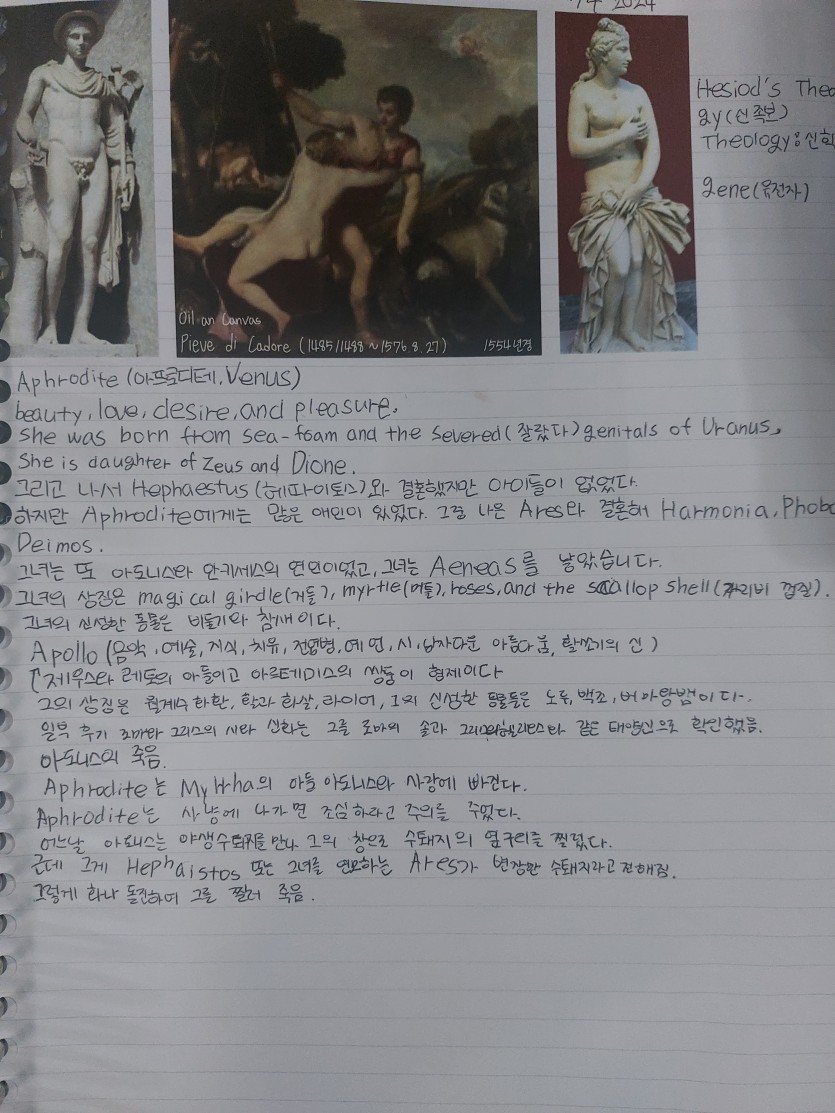 2024
Hesiod's Theo
gy(신 족보)
Theology:신학
gene(유전자)
Oil an Canvas
Pieve di Cadore (1485/1488 ~ 1576.8.27) 1554년경
Aphrodite (아프로디테, Venus)
beauty, love, desire, and pleasure,
She was born from sea-foam and the severed(잘랐다) genitals of Uranus,
She is daughter of Zeus and Dione.
그리고 나서 Hephaestus (헤파이토스)와 결혼했지만 아이들이 없었다.
하지만 Aphrodite에게는 많은 애인이 있었다. 그중 나은 Ares와 결혼해 Harmonia, Phobo
Deimos.
그녀는 또 아도니스와 안키세스의 연인이었고, 그녀는 Aeneas를 낳았습니다.
그녀의 상징은 magical girdle(거들), myrtle(머틀), roses, and the scallop shell (가리비 껍질).
그녀의 신성한 동물은 비둘기와 참새이다.
Apollo (음악, 예술, 지식, 치유, 전염병, 예언, 시, 남자다운 아름다움, 활쏘기의 신)
제우스와 레토의 아들이고 아르테미스의 쌍둥이 형제이다
그의 상징은 월계수 화환, 활과 화살, 라이어, 그의 신성한 동물들은 노루, 백조, 비단뱀이다.
일부 후기 로마와 그리스의 시와 신화는 그를 로마의 솔과 그리스의 헬리오스와 같은 태양신으로 확인했음.
아도니스의 죽음.
Aphrodite는 Myrrha의 아들 아도니스와 사랑에 빠진다.
Aphrodite는 사냥에 나가면 조심하라고 주의를 주었다.
어느날 아도니스는 야생수퇘지를 만나 그의 창으로 수퇘지의 옆구리를 찔렀다.
근데 그게 Hephaistos 또는 그녀를 연모하는 Ares가 변장한 수퇘지라고 전해짐.
그렇게 화나 돌진하여 그를 찔러 죽음.